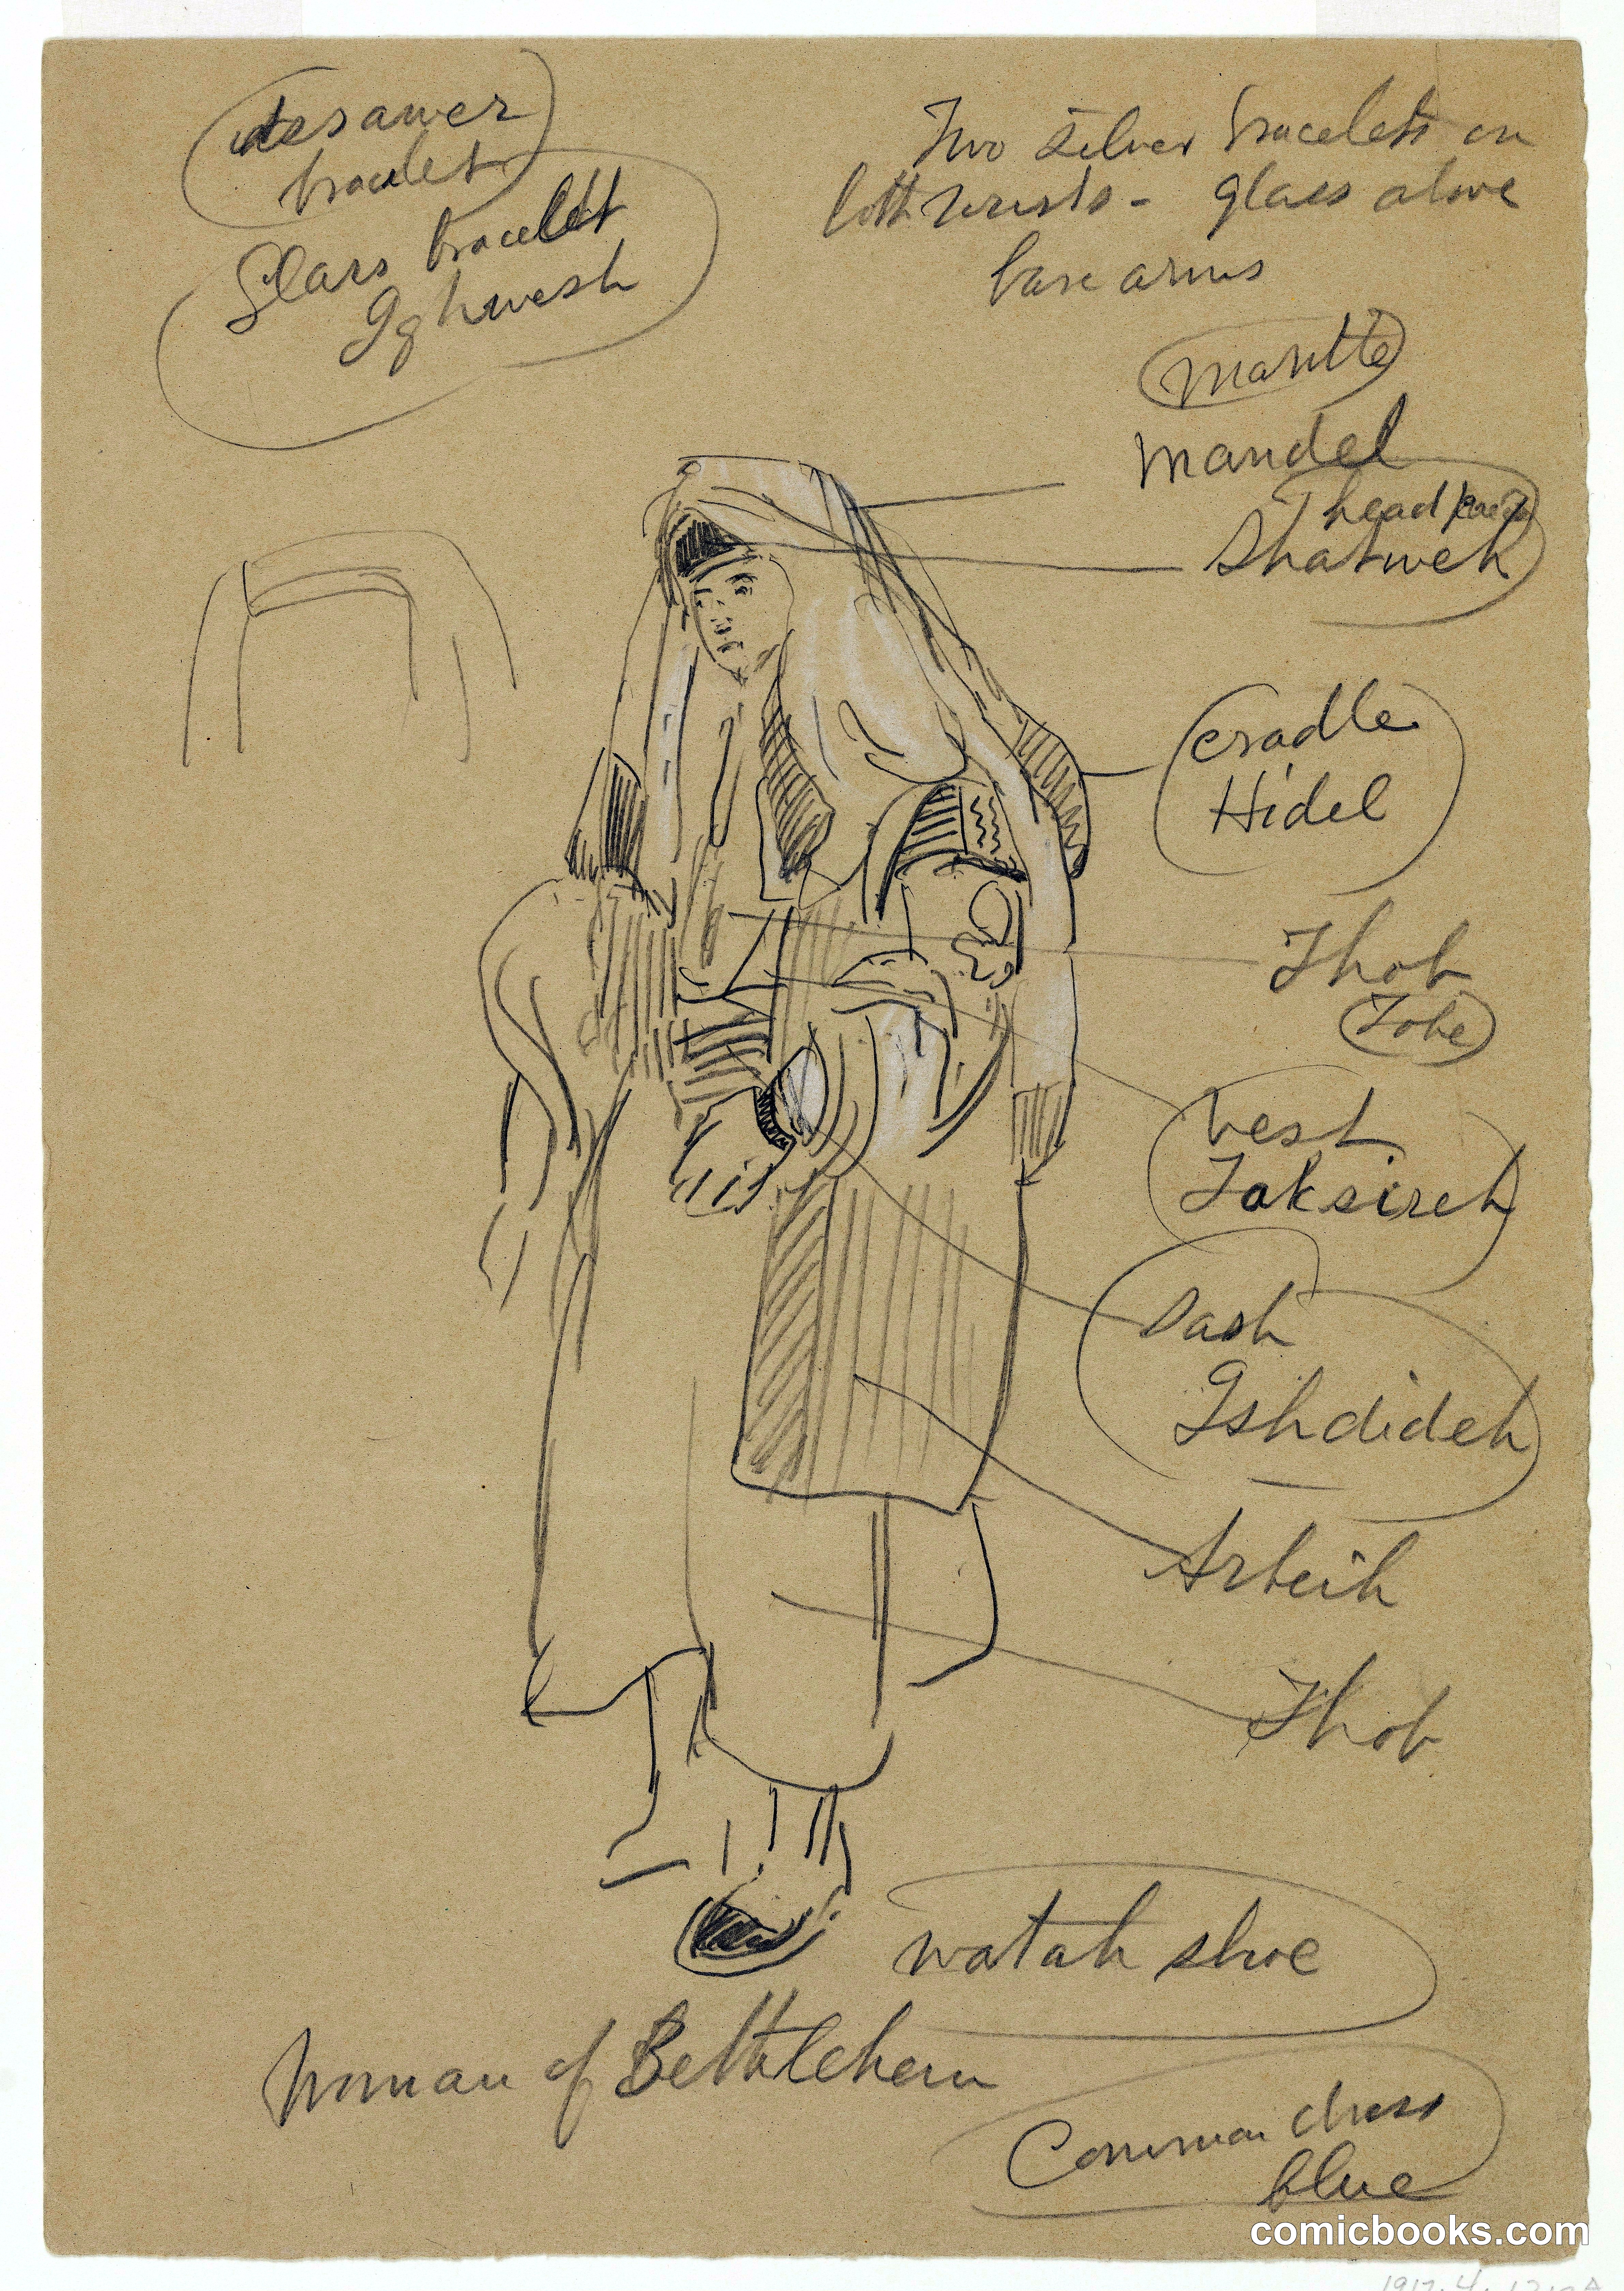 bracelet
Glass bracelet
Ighwesh
Two silver bracelets on
both wrists - glass above
bare arms
mantle
mandel
head
Shatweh
cradle
Hidel
Thob
Tobe
vest
Taksireh
Sash
Ishdideh
Arbeih
Thob
watah shoe
Woman of Bethlehem
Common dress
blue
comicbooks.com